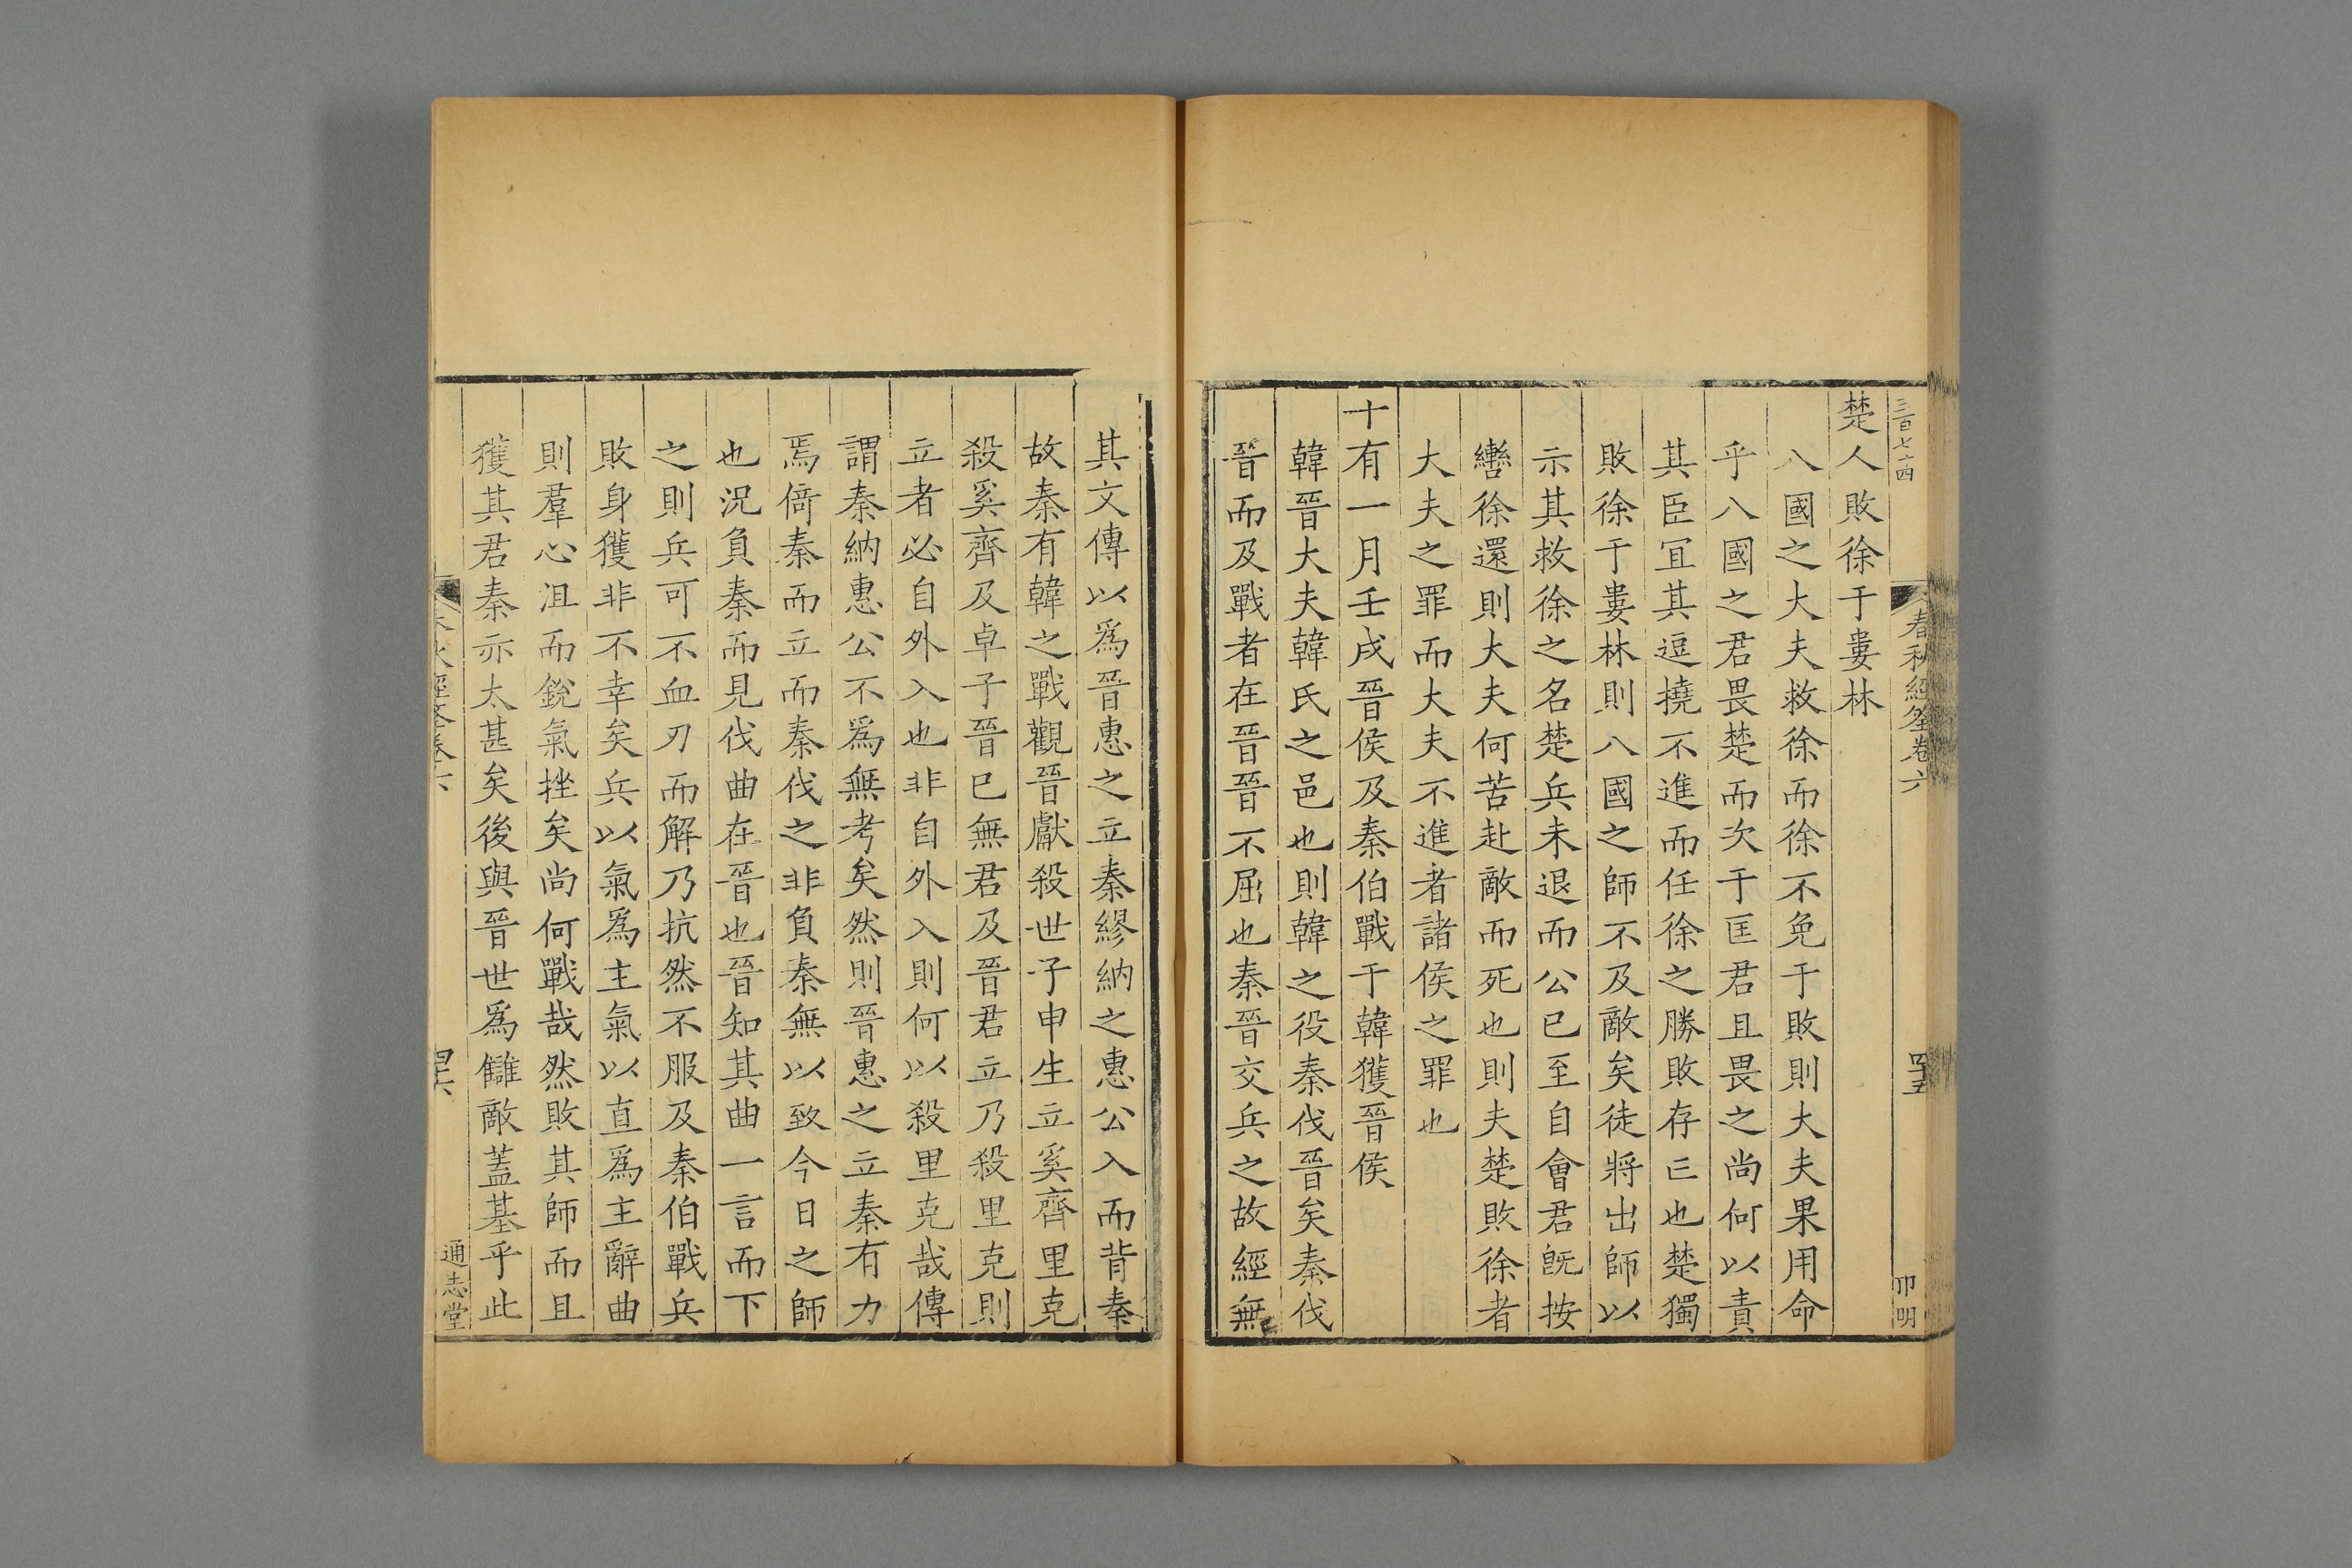 三百七十四
春秋經筌卷六
四十五
卬明
楚人敗徐于婁林
八國之大夫救徐而徐不免于敗則大夫果用命
乎八國之君畏楚而次于匡君且畏之尚何以責
其臣冝其逗撓不進而任徐之勝敗存亡也楚獨
敗徐于婁林則八國之師不及敵矣徒將出師以
示其救徐之名楚兵未退而公已至自會君旣按
轡徐還則大夫何苦赴敵而死也則夫楚敗徐者
大夫之罪而大夫不進者諸侯之罪也
十有一月壬戌晉侯及秦伯戰于韓獲晉侯
韓晉大夫韓氏之邑也則韓之役秦伐晉矣秦伐
晉而及戰者在晉晉不屈也秦晉交兵之故經無
其文傳以爲晉惠之立秦繆納之惠公入而背秦
故秦有韓之戰觀晉獻殺世子申生立奚齊里克
殺奚齊及卓子晉已無君及晉君立乃殺里克則
立者必自外入也非自外入則何以殺里克哉傳
謂秦納惠公不爲無考矣然則晉惠之立秦有力
焉倚秦而立而秦伐之非負秦無以致今日之師
也況負秦而見伐曲在晉也晉知其曲一言而下
之則兵可不血刃而解乃抗然不服及秦伯戰兵
敗身獲非不幸矣兵以氣爲主氣以直爲主辭曲
則羣心沮而銳氣挫矣尚何戰哉然敗其師而且
獲其君秦亦太甚矣後與晉世爲讎敵蓋基乎此
通志堂